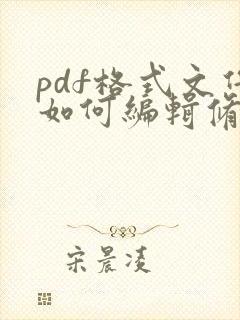 pdf格式文件
如何编辑修
宋晨凌